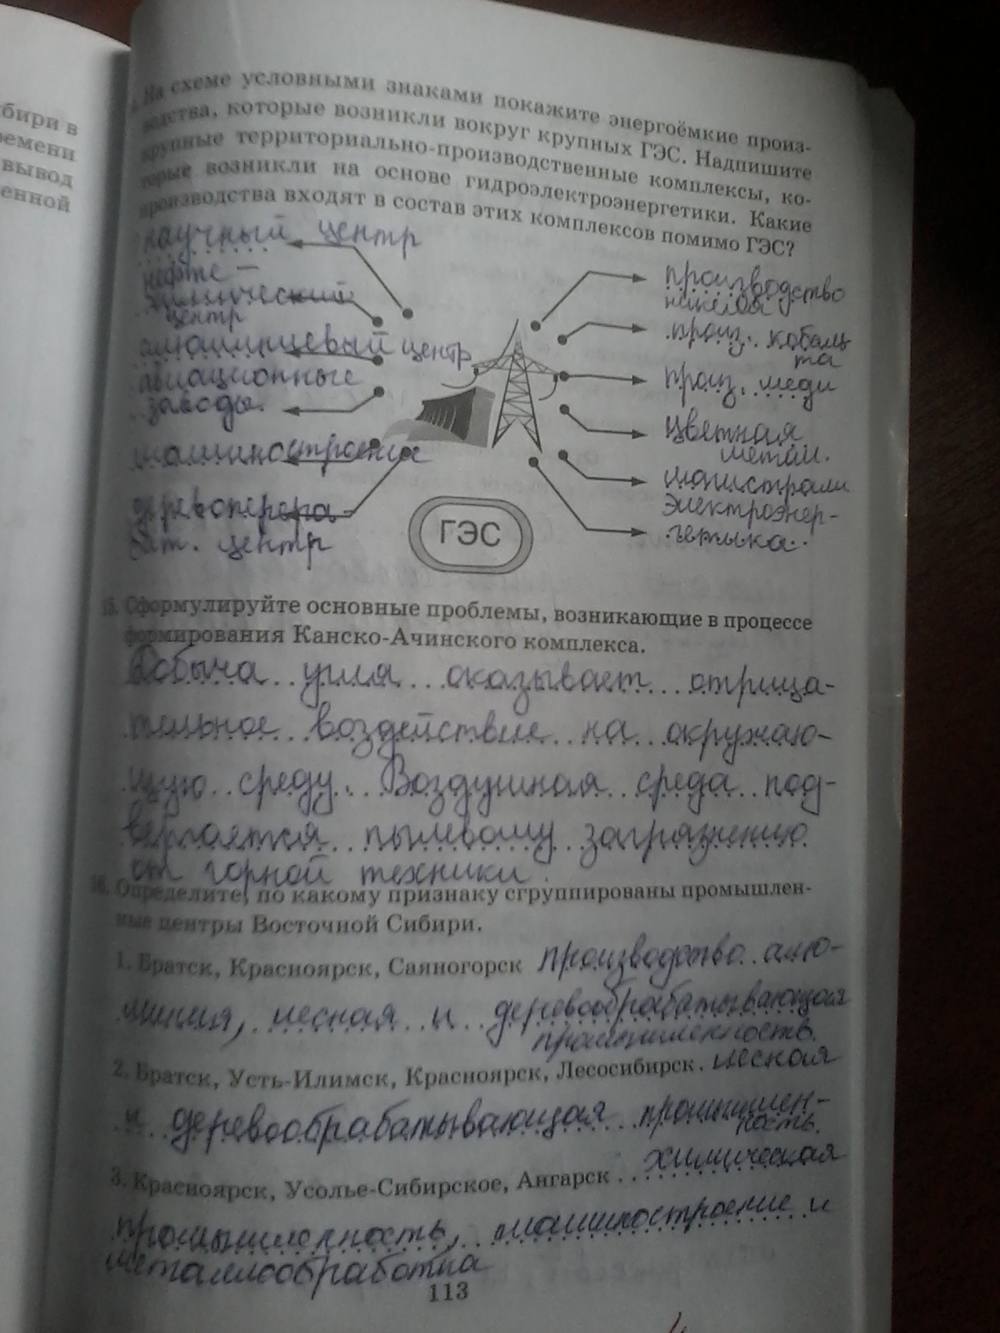 бири в
ремени
вывод
енной
На схеме условными знаками покажите энергоёмкие произ-
водства, которые возникли вокруг крупных ГЭС. Надпишите
крупные территориально-производственные комплексы, ко-
торые возникли на основе гидроэлектроэнергетики. Какие
производства входят в состав этих комплексов помимо ГЭС?
научный центр
нефте-
химический
центр
алюминиевый центр
авиационные
заводы.
машиностроения
деревоперера-
бат. центр
производство
никеля
произ. кобаль
та
произ. меди
цветная
метал.
магистрали
электроэнер-
гетыка.
ГЭС
15. Сформулируйте основные проблемы, возникающие в процессе
формирования Канско-Ачинского комплекса.
Добыча угля оказывает отрица-
тельное воздействие на окружаю-
щую среду. Воздушная среда под-
вергается пылевому загрязнению
от горной техники.
16. Определите, по какому признаку сгруппированы промышлен-
ные центры Восточной Сибири.
1. Братск, Красноярск, Саяногорск производство алю-
миния, лесная и деревообрабатывающая
промышленность.
2. Братск, Усть-Илимск, Красноярск, Лесосибирск. лесная
и деревообрабатывающая промышлен-
ность.
3. Красноярск, Усолье-Сибирское, Ангарск . . . химическая
промышленность, машиностроение и
металлообработка
113